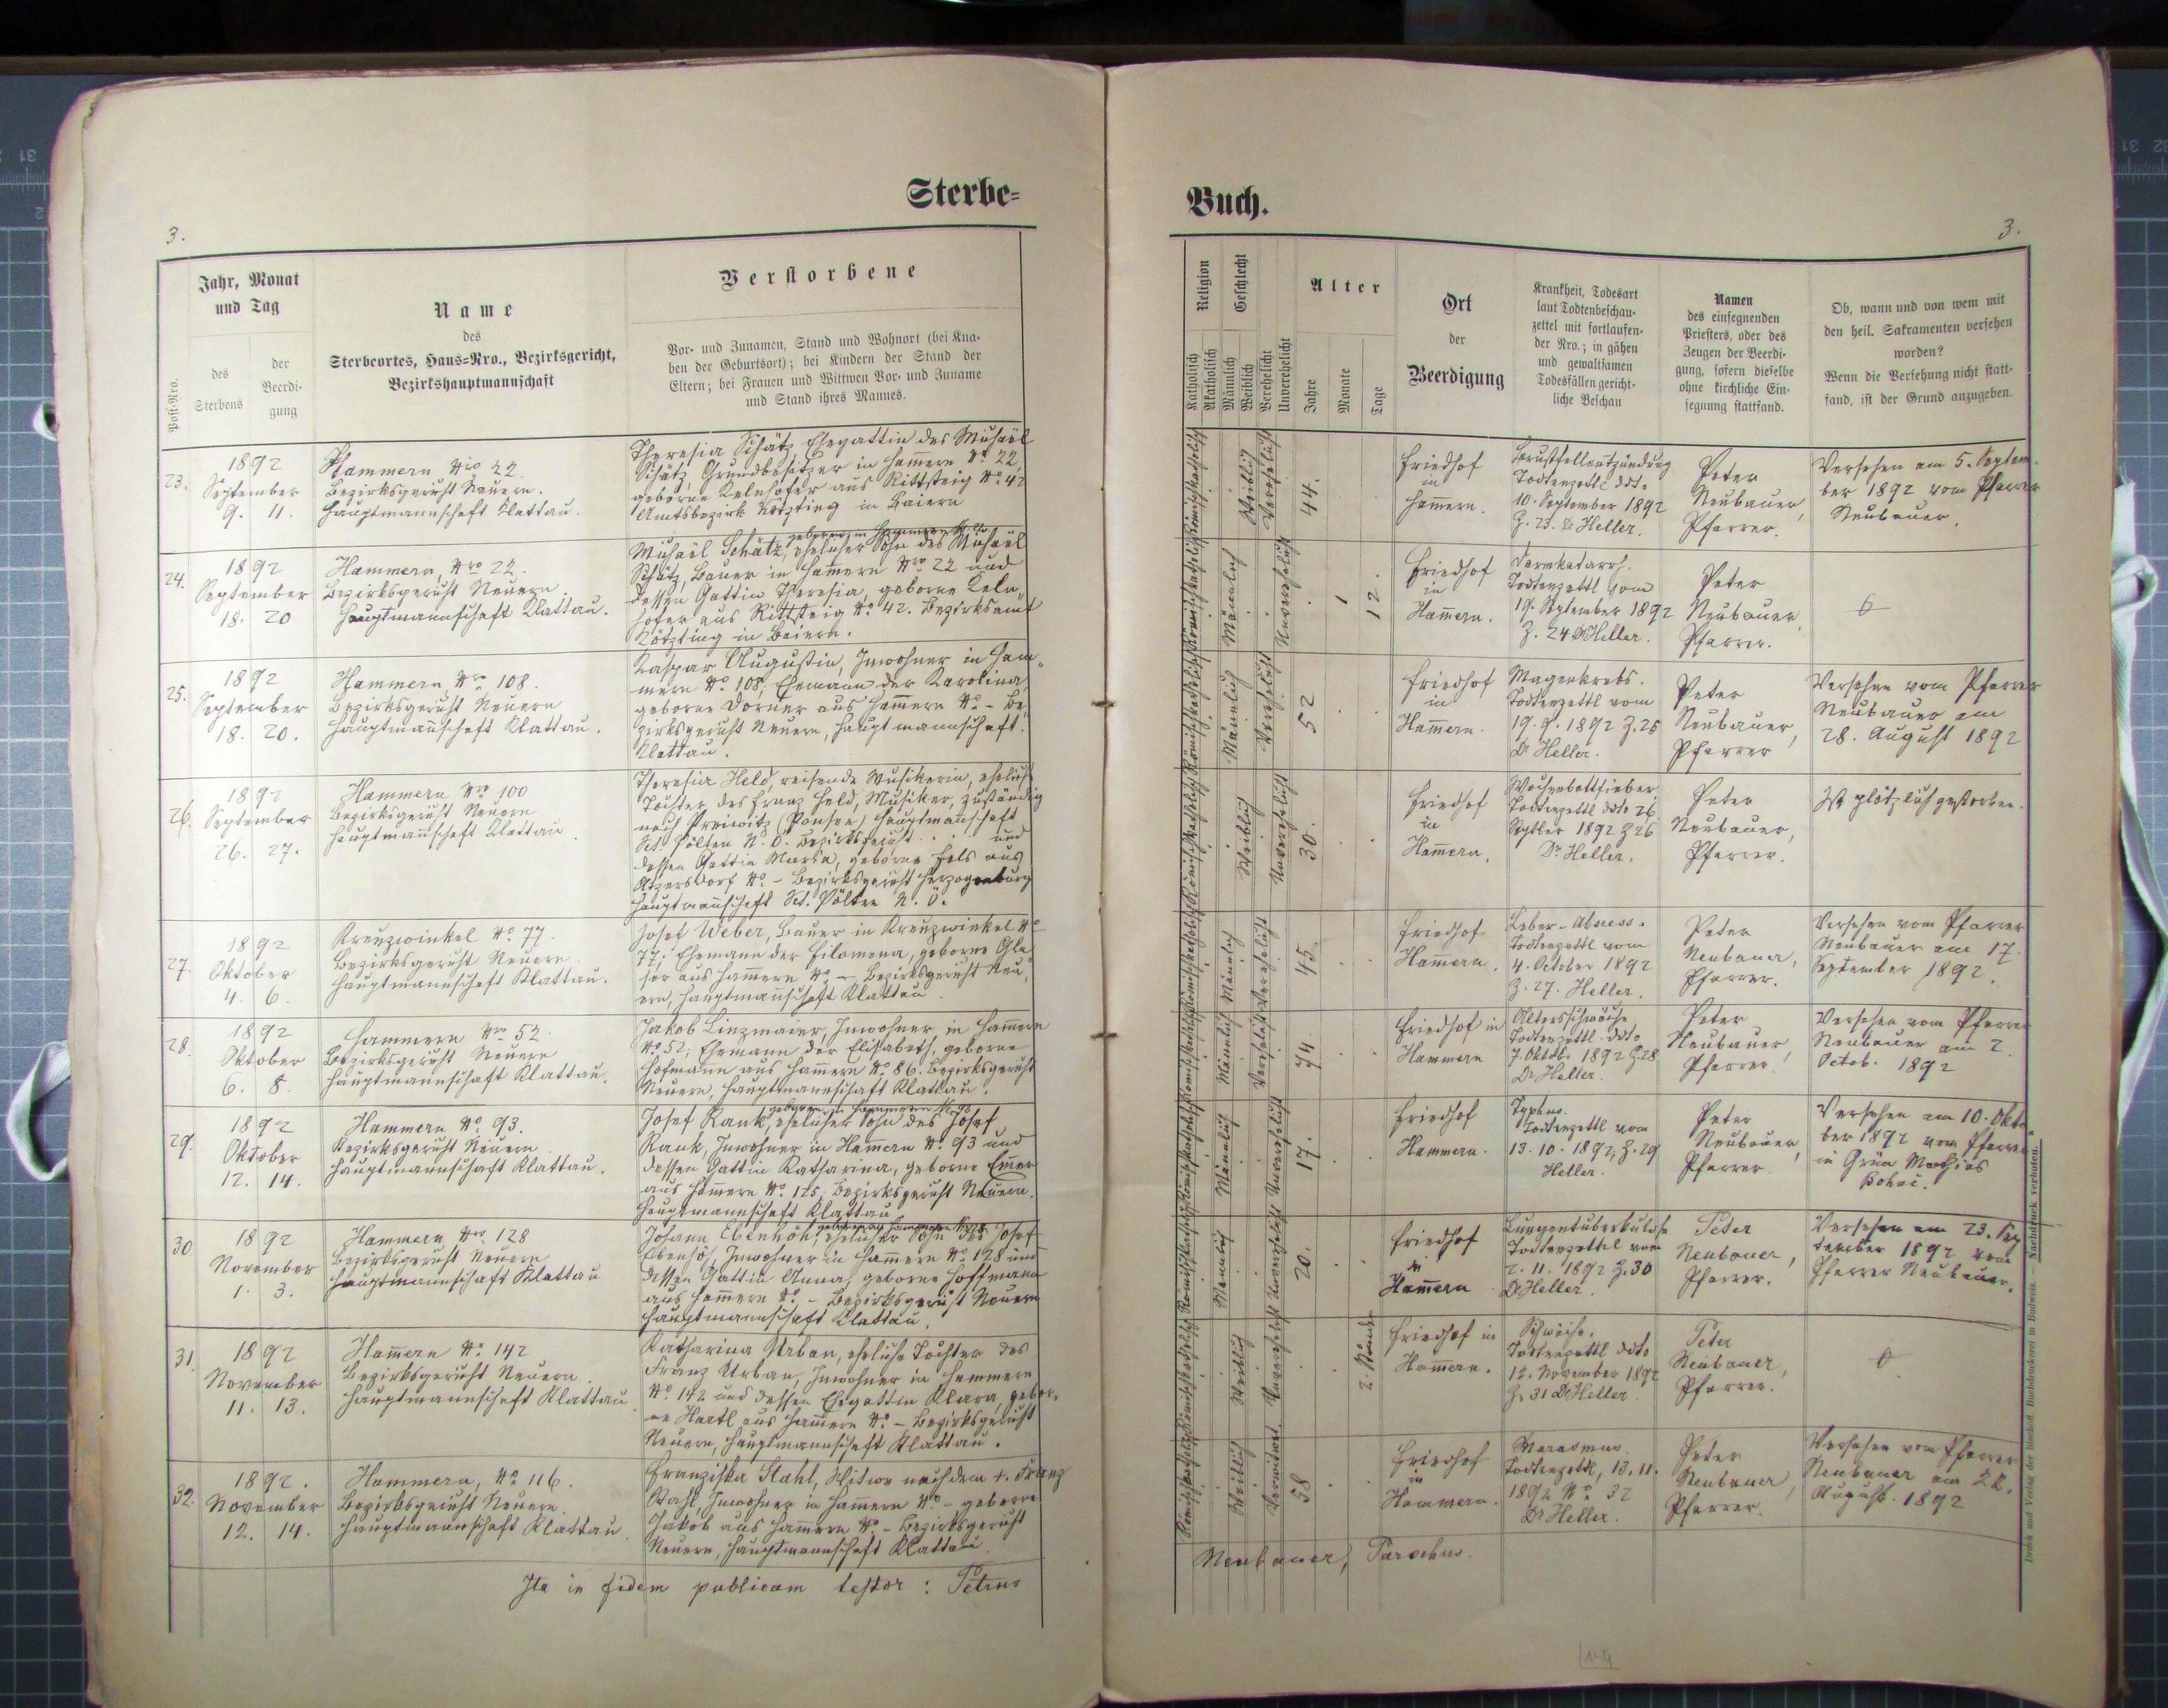 Sterbe-
3.
Jahr, Monat
und Tag
Post-Nro.
des
Sterbens
der
Beerdi-
gung
Name
des
Sterbeortes, Haus-Nro., Bezirksgericht,
Bezirkshauptmannschaft
Verstorbene
Vor- und Zunamen, Stand und Wohnort (bei Kna-
ben der Geburtsort); bei Kindern der Stand der
Eltern; bei Frauen und Wittwen Vor- und Zuname
und Stand ihres Mannes.
23.
1892
September
9. 11.
Hammern Nro 22.
Bezirksgericht Neuern.
Hauptmannschaft Klattau.
Theresia Schätz, Ehegattin des Michaël
Schätz, Grundbesitzer in Ham̄ern No 22,
geborne Kelnhofer aus Rittsteig No 42
Amtsbezirk Kötzting in Baiern
24.
1892
September
18. 20
Hammern, Nro 22.
Bezirksgericht Neuern
Hauptmannschaft Klattau.
geboren in Hammern
Michaël Schätz, ehelicher Sohn des Michaël
Schätz, Bauer in Ham̄ern Nro 22 und
dessen Gattin Theresia, geborne Keln-
hofer aus Rittsteig No 42. Bezirksamt
Kötzting in Baiern.
25.
1892
September
18. 20.
Hammern Nro 108.
Bezirksgericht Neuern
Hauptman̄schaft Klattau.
Kaspar Augustin, Inwohner in Ham-
mern No 108, Ehemann der Karolina,
geborne Dorner aus Ham̄ern No - Be-
zirksgericht Neuern, Hauptmannschaft
Klattau.
26.
1892
September
26. 27.
Hammern Nro 100
Bezirksgericht Neuern
Hauptman̄schaft Klattau.
Theresia Held, reisende Musikerin, eheliche
Tochter des Franz Held, Musiker, zuständig
nach (Ponsee) Hauptman̄schaft
Sct. Pölten N. Ö. Bezirksgericht . . und
dessen Gattin Maria, geborne Fels aus
Atzersdorf No - Bezirksgericht Herzogenburg
Hauptman̄schaft Sct. Pölten N. Ö.
27.
1892
Oktober
4. 6.
Kreuzwinkel No 77.
Bezirksgericht Neuern
Hauptmannschaft Klattau.
Josef Weber, Bauer in Kreuzwinkel No
77; Ehemann der Filomena, geborne Gla-
ser aus Ham̄ern No - Bezirksgericht Neu-
ern, Hauptman̄schaft Klattau.
28.
1892
Oktober
6. 8.
Hammern Nro 52.
Bezirksgericht Neuern
Hauptmannschaft Klattau.
Jakob Linzmaier, Inwohner in Ham̄ern
No 52; Ehemann der Elisabeth, geborne
Hofmann aus Ham̄ern No 86. Bezirksgericht
Neuern, Hauptmannschaft Klattau.
29.
1892
Oktober
12. 14.
Hammern No 93.
Bezirksgericht Neuern
Hauptmannschaft Klattau.
geboren in Hammern No 93
Josef Rank, ehelicher Sohn des Josef
Rank, Inwohner in Ham̄ern No 93 und
dessen Gattin Katharina, geborne
aus Ham̄ern No 125, Bezirksgericht Neuern.
Hauptmannschaft Klattau
30
1892
November
1. 3.
Hammern Nro 128
Bezirksgericht Neuern
Hauptmannschaft Klattau
geboren in Hammern
Johann Ebenhöh, ehelicher Sohn des Josef
Ebenhöh, Inwohner in Ham̄ern No 128 und
dessen Gattin Anna, geborne Hoffmann
aus Ham̄ern No - Bezirksgericht Neuern
Hauptmannschaft Klattau.
31.
1892
November
11. 13.
Ham̄ern No 142
Bezirksgericht Neuern.
Hauptmannschaft Klattau.
Katharina Urban, eheliche Tochter des
Franz Urban, Inwohner in Hammern
No 142 und dessen Ehegattin Klara, gebor-
ne Hartl aus Ham̄ern No - Bezirksgericht
Neuern, Hauptmannschaft Klattau.
32.
1892.
November
12. 14.
Hammern, No 116.
Bezirksgericht Neuern.
Hauptmannschaft Klattau.
Franziska Stahl, Witwe nach dem +. Franz
Stahl, Inwohner in Ham̄ern No - geborne
Jakob aus Ham̄ern No - Bezirksgericht
Neuern, Hauptmannschaft Klattau.
Ita in fidem publicam testor: Petrus
Buch.
3.
Religion
Katholisch
Akatholisch
Geschlecht
Männlich
Weiblich
Verehelicht
Unverehelicht
Alter
Jahre
Monate
Tage
Ort
der
Beerdigung
Krankheit, Todesart
laut Todtenbeschau-
zettel mit fortlaufen-
der Nro.; in gähen
und gewaltsamen
Todesfällen gericht-
liche Beschau
Namen
des einsegnenden
Priesters, oder des
Zeugen der Beerdi-
gung, sofern dieselbe
ohne kirchliche Ein-
segnung stattfand.
Ob, wann und von wem mit
den heil. Sakramenten versehen
worden?
Wenn die Versehung nicht statt-
fand, ist der Grund anzugeben.
Römisch katholisch
Weiblich
Verehelicht
44.
Friedhof
in
Ham̄ern.
Brustfellentzündung
Todtenzettl ddto
10. September 1892
Z. 23. Dr Heller.
Peter
Neubauer,
Pfarrer.
Versehen am 5. Septem-
ber 1892 vom Pfarrer
Neubauer.
Römisch katholisch
Männlich
Unverehelicht
1
12.
Friedhof
in
Ham̄ern.
Darmkatarrh.
Todtenzettl vom
19. September 1892
Z. 24 Dr Heller.
Peter
Neubauer,
Pfarrer.
Römisch katholisch
Männlich
Verehelicht
52
Friedhof
in
Ham̄ern.
Magenkrebs.
Todtenzettl vom
19. 9. 1892 Z. 25
Dr Heller.
Peter
Neubauer,
Pfarrer
Versehen vom Pfarrer
Neubauer am
28. August 1892
Römisch katholisch
Weiblich
Unverehelicht
30.
Friedhof
in
Ham̄ern.
Wochenbettfieber
Todtenzettl ddto 26
Septber 1892 Z 26
Dr Heller.
Peter
Neubauer,
Pfarrer.
Ist plötzlich gestorben.
Römisch katholisch
Männlich
Verehelicht
45.
Friedhof
Ham̄ern.
Leber-Abscess.
Todtenzettl vom
4. October 1892
Z. 27. Heller.
Peter
Neubauer,
Pfarrer.
Versehen vom Pfarrer
Neubauer am 17.
September 1892.
Römisch katholisch
Männlich
Verehelicht
74.
Friedhof in
Hammern
Altersschwäche
Todtenzettl ddto
7. Oktob. 1892 Z. 28
Dr Heller.
Peter
Neubauer,
Pfarrer.
Versehen vom Pfarrer
Neubauer am 2.
Octob. 1892
Römisch katholisch
Männlich
Unverehelicht
17.
Friedhof
Hammern.
Typhus.
Todtenzettl vom
13. 10. 1892, Z. 29
Heller.
Peter
Neubauer,
Pfarrer.
Versehen am 10. Okto-
ber 1892 vom Pfarrer
in Grün Mathias
Römisch katholisch
Mannlich
Unverehelicht
20.
Friedhof
in
Ham̄ern
Lungentuberkulose
Todtenzettel vom
2. 11. 1892 Z. 30
Dr Heller.
Peter
Neubauer,
Pfarrer.
Versehen am 23. Sep-
tember 1892 vom
Pfarrer Neubauer.
Römisch katholisch
Weiblich
Unverehelicht
2. Stunden
Friedhof in
Ham̄ern.
Schwäche.
Todtenzettl ddto
12. November 1892
Z. 31 Dr Heller.
Peter
Neubauer,
Pfarrer.
Römisch katholisch
Weiblich
Verwitwet.
58
Friedhof
in
Hammern.
Marasmus.
Todtenzettl, 13. 11.
1892 No 32
Dr Heller.
Peter
Neubauer,
Pfarrer.
Versehen vom Pfarrer
Neubauer am 22.
August. 1892
Neubauer, Parochus.
Druck und Verlag der böhmisch. Buchdruckerei in Budweis. — Nachdruck verboten.